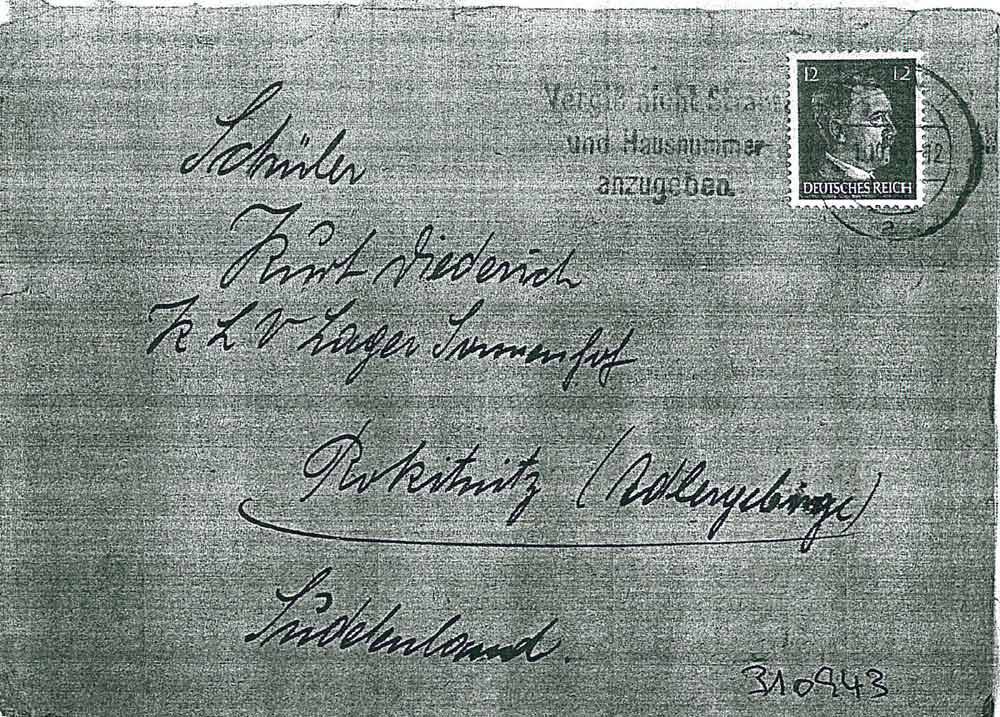 Vergiß nicht Straße
und Hausnummer
anzugeben.
12 12
DEUTSCHES REICH
12
a
Schüler
Kurt Diederich
K L V Lager Sonnenhof
Rokitnitz (Adlergebirge)
Sudetenland.
310943